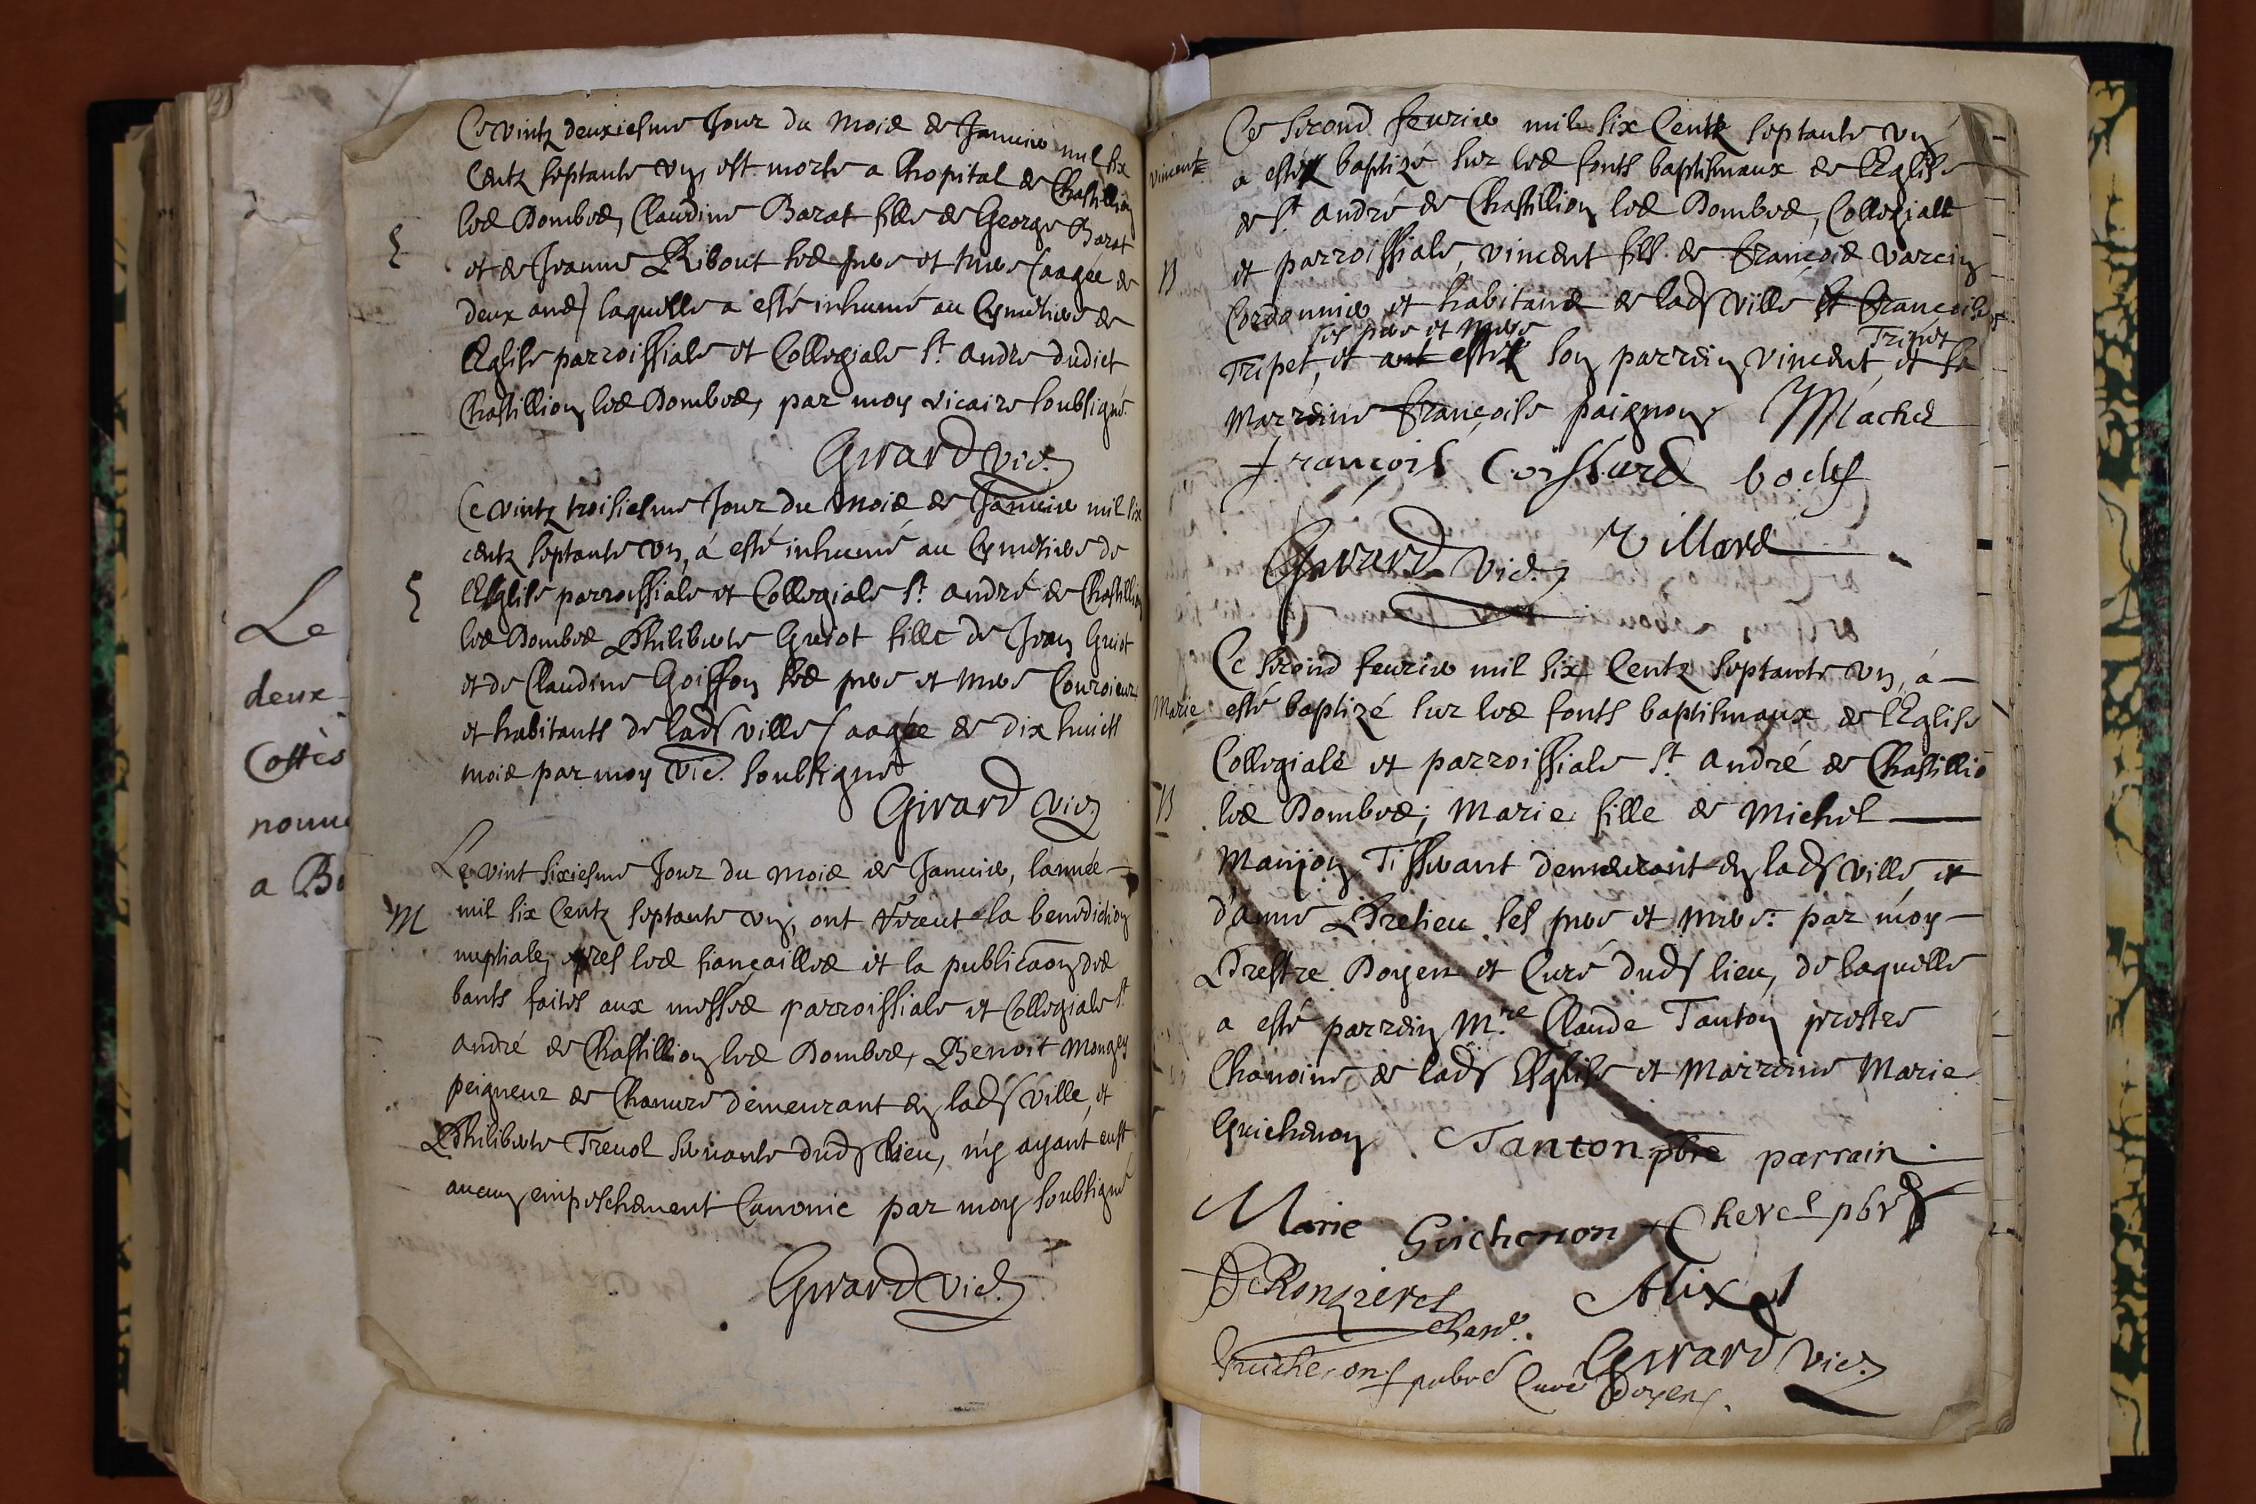 Le
deux
Costes
nouu
a Bo
Ce vintz deuxiesme Jour du mois de Januier mil six
Centz septante vn, est morte a lhopital de Chastillion
les Dombes, Claudine Barat fille de George Barat
et de Jeanne Ribout ses pere et mere (aagée de
deux ans) laquelle a esté inhumé au Cymetiere de
lEglise parroissiale et Collegiale St. andre dudict
Chastillion les Dombes, par moy vicaire soubsigné.
Girard vic.
Ce vintz troisiesme Jour du mois de Januier mil six
centz septante vn, á esté inhumé au Cymetiere de
lEglise parroissiale et Collegiale St. andré de Chastillion
les Dombes Philiberte Guiot fille de Jean Guiot
et de Claudine Goiffon ses pere et mere Couroieur
et habitants de lad. ville (aagée de dix huict
mois par moy vic. soubsigné
Girard vic.
Le vint sixiesme Jour du mois de Januier, lannée
M
mil six Centz septante vn, ont receut la benediction
nuptiale, apres les fiançailles et la publicaon des
bants faites aux messes parroissiale et Collegiale St.
andré de Chastillion les Dombes, Benoit Mongey
peigneur de Chanure demeurant en lad. ville, et
Philiberte Treuol seruante dud. lieu, n'y ayant eust
aucun empeschement Canonic par moy soubsigné
Girard vic.
Ce second feurier mil six Centz septante vn
vincent
a esté baptizé sur les fonts baptismaux de lEglise
de St. andré de Chastillion les Dombes, Collegiale
B
et parroissiale, vincent fils de françois varein
Cordonnier et habitans de lad. ville et françoise
ses pere et mere
Tripet
Tripet, et ant esté son parrein vincent, et sa
marreine françoise paignon Machet
françois Coissard
Villard
Girard vic.
Ce second feurier mil six Centz septante vn, á
Marie
esté baptizé sur les fonts baptismaux de lEglise
Collegiale et parroissiale St. andré de Chastillio
B
les Dombes; Marie fille de Michel
Manjon Tisserant demeurant en lad. ville, et
d'anne Prelieu ses pere et mere: par moy
Prestre Doyen et Curé dud. lieu, de laquelle
a esté parrein M.re Claude Tanton prestre
Chanoine de lad. Eglise et Marreine Marie
Guichenon Tanton pbre parrain.
Marie Guichenon Cherel pbre
Alix
Girard vic.
Guichenon pbre Curé Doyen.